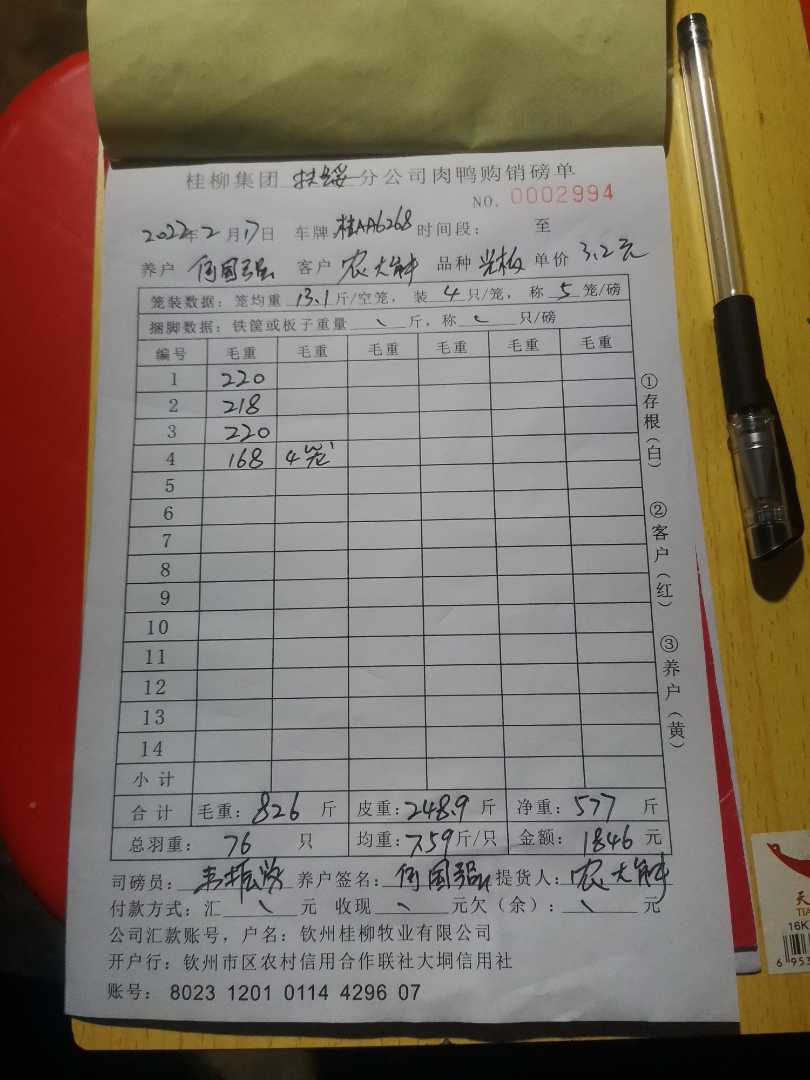 桂柳集团 扶绥 分公司肉鸭购销磅单
NO. 0002994
2022年2月17日 车牌 桂AA6268 时间段: 至
养户 何国强 客户 农大 品种 光板 单价 3.2元
笼装数据: 笼均重 13.1 斤/空笼, 装 4 只/笼, 称 5 笼/磅
捆脚数据: 铁筐或板子重量 斤, 称 只/磅
编号 毛重 毛重 毛重 毛重 毛重 毛重
1 220
2 218
3 220
4 168 4笼
5
6
7
8
9
10
11
12
13
14
小计
合计 毛重: 826 斤 皮重: 248.9 斤 净重: 577 斤
总羽重: 76 只 均重: 7.59 斤/只 金额: 1846 元
司磅员: 韦 养户签名: 何国强 提货人: 农大
付款方式: 汇 元 收现 元欠(余): 元
公司汇款账号, 户名: 钦州桂柳牧业有限公司
开户行: 钦州市区农村信用合作联社大垌信用社
账号: 8023 1201 0114 4296 07
①存根(白)
②客户(红)
③养户(黄)
天
TIA
16K
6 953